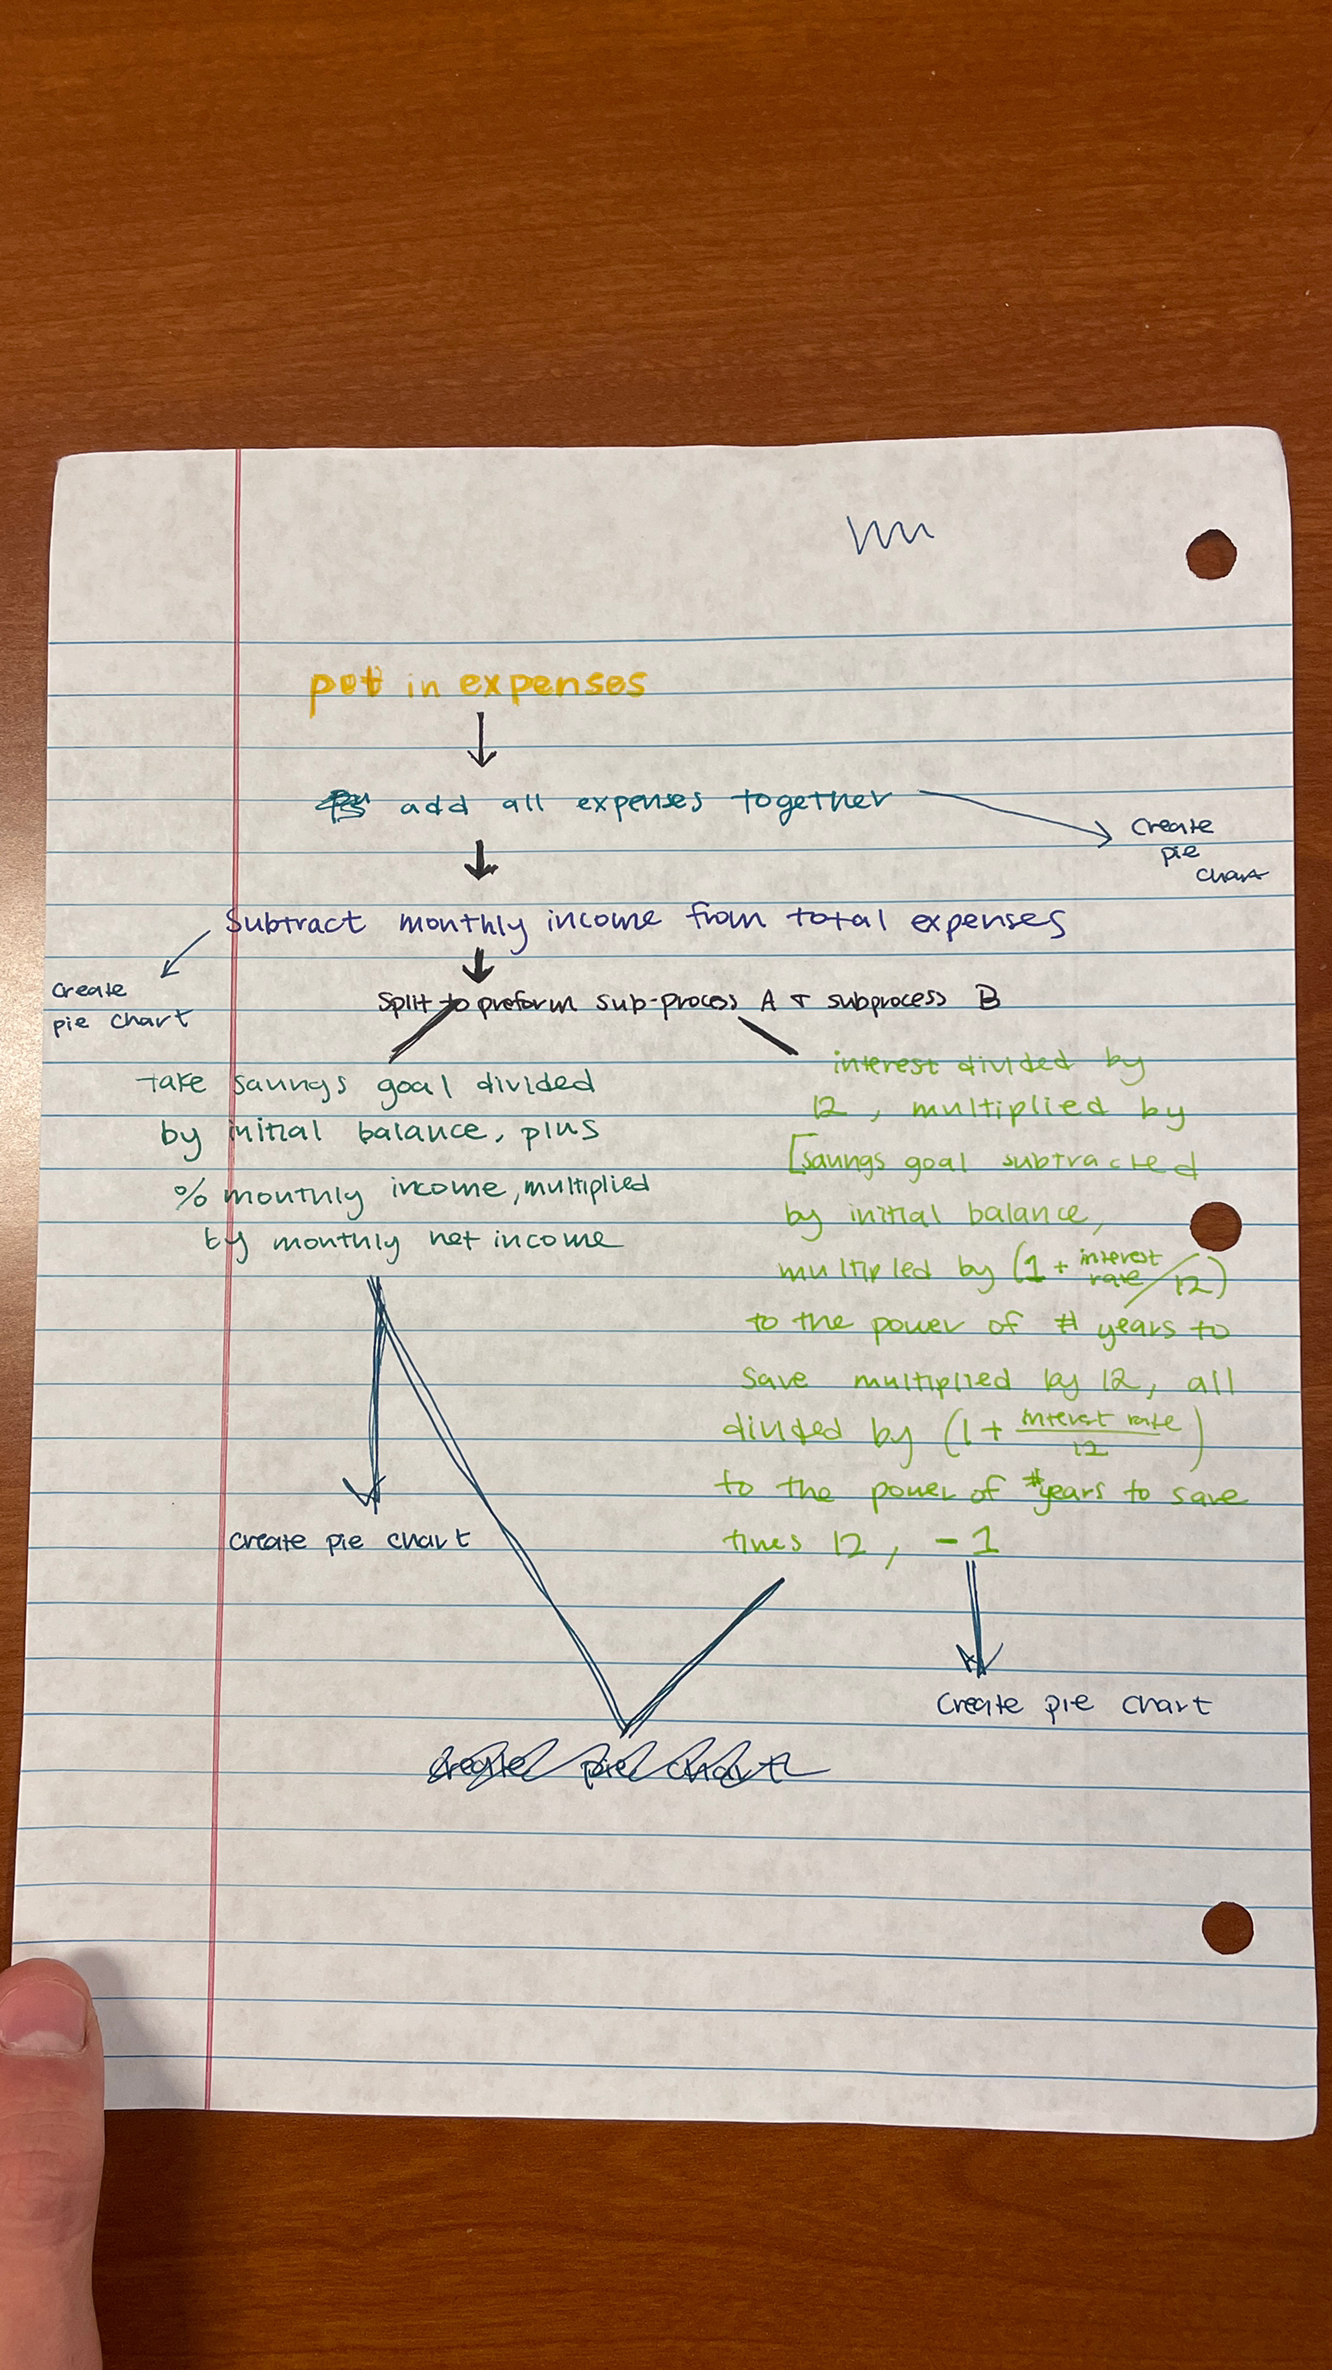 put in expenses
add all expenses together
create
pie
chart
Subtract monthly income from total expenses
create
pie chart
Split to preform sub-process A + subprocess B
take savings goal divided
by initial balance, plus
% monthly income, multiplied
by monthly net income
create pie chart
interest divided by
12, multiplied by
[savings goal subtracted
by initial balance,
multipled by (1 + interest rate / 12)
to the power of # years to
save multiplied by 12, all
divided by (1 + interest rate / 12)
to the power of # years to save
times 12, -1
create pie chart
create pie chart